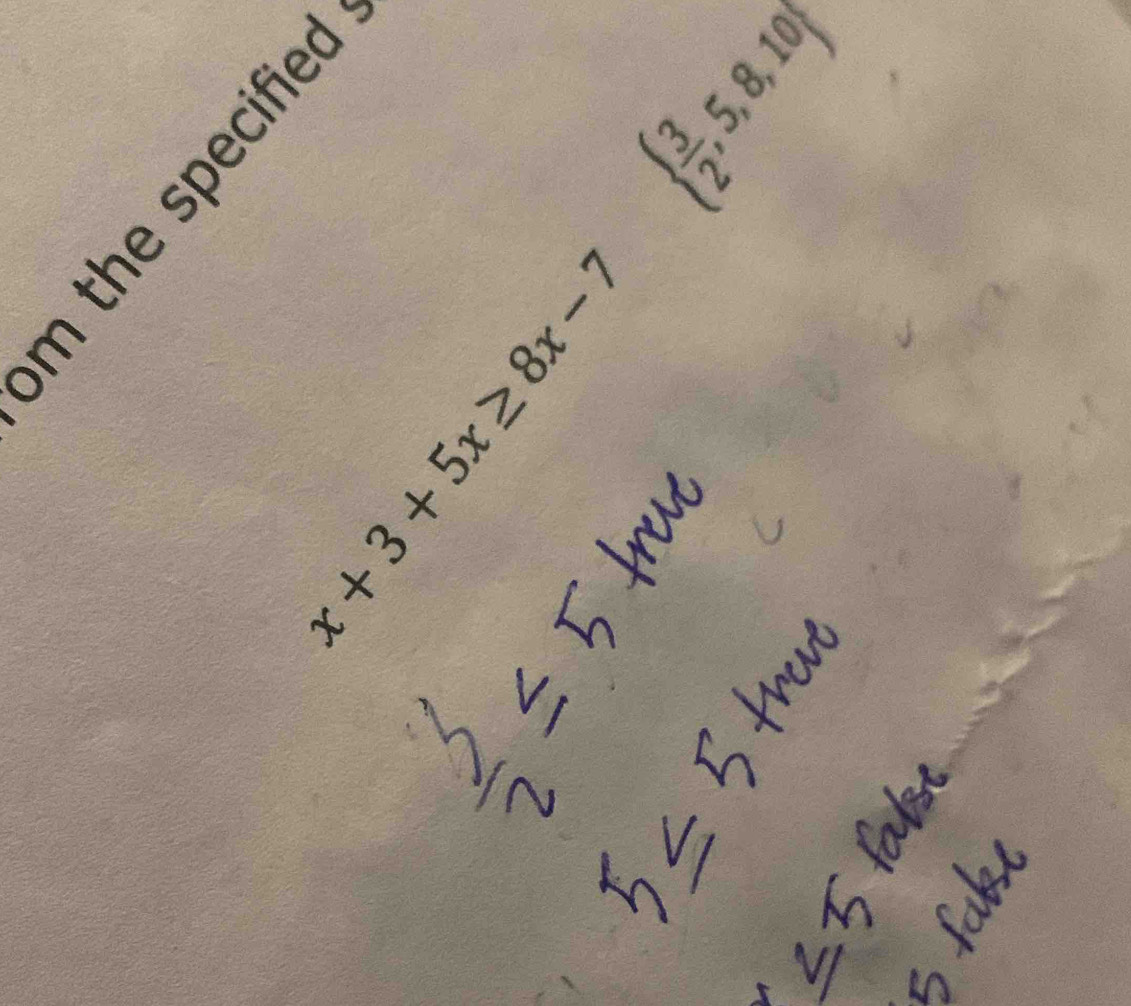 om the specified
x + 3 + 5x ≥ 8x − 7 {3/2, 5, 8, 10}
3/2 ≤ 5 true
5 ≤ 5 true
≤ 5 false
5 false